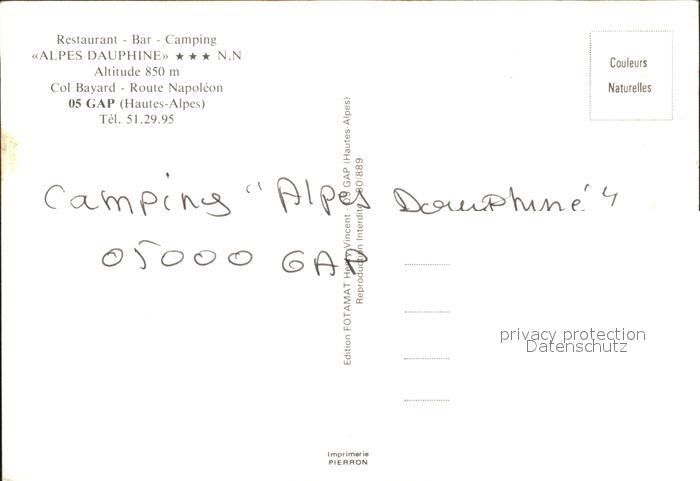 Restaurant - Bar - Camping
«ALPES DAUPHINE» ★ ★ ★ N.N
Altitude 850 m
Col Bayard - Route Napoléon
05 GAP (Hautes-Alpes)
Tél. 51.29.95
Couleurs
Naturelles
Camping "Alpes Dauphiné"
05000 GAP
Edition FOTAMAT Henry Vincent - 05 GAP (Hautes Alpes)
Reproduction Interdite 80/889
privacy protection
Datenschutz
Imprimerie
PIERRON